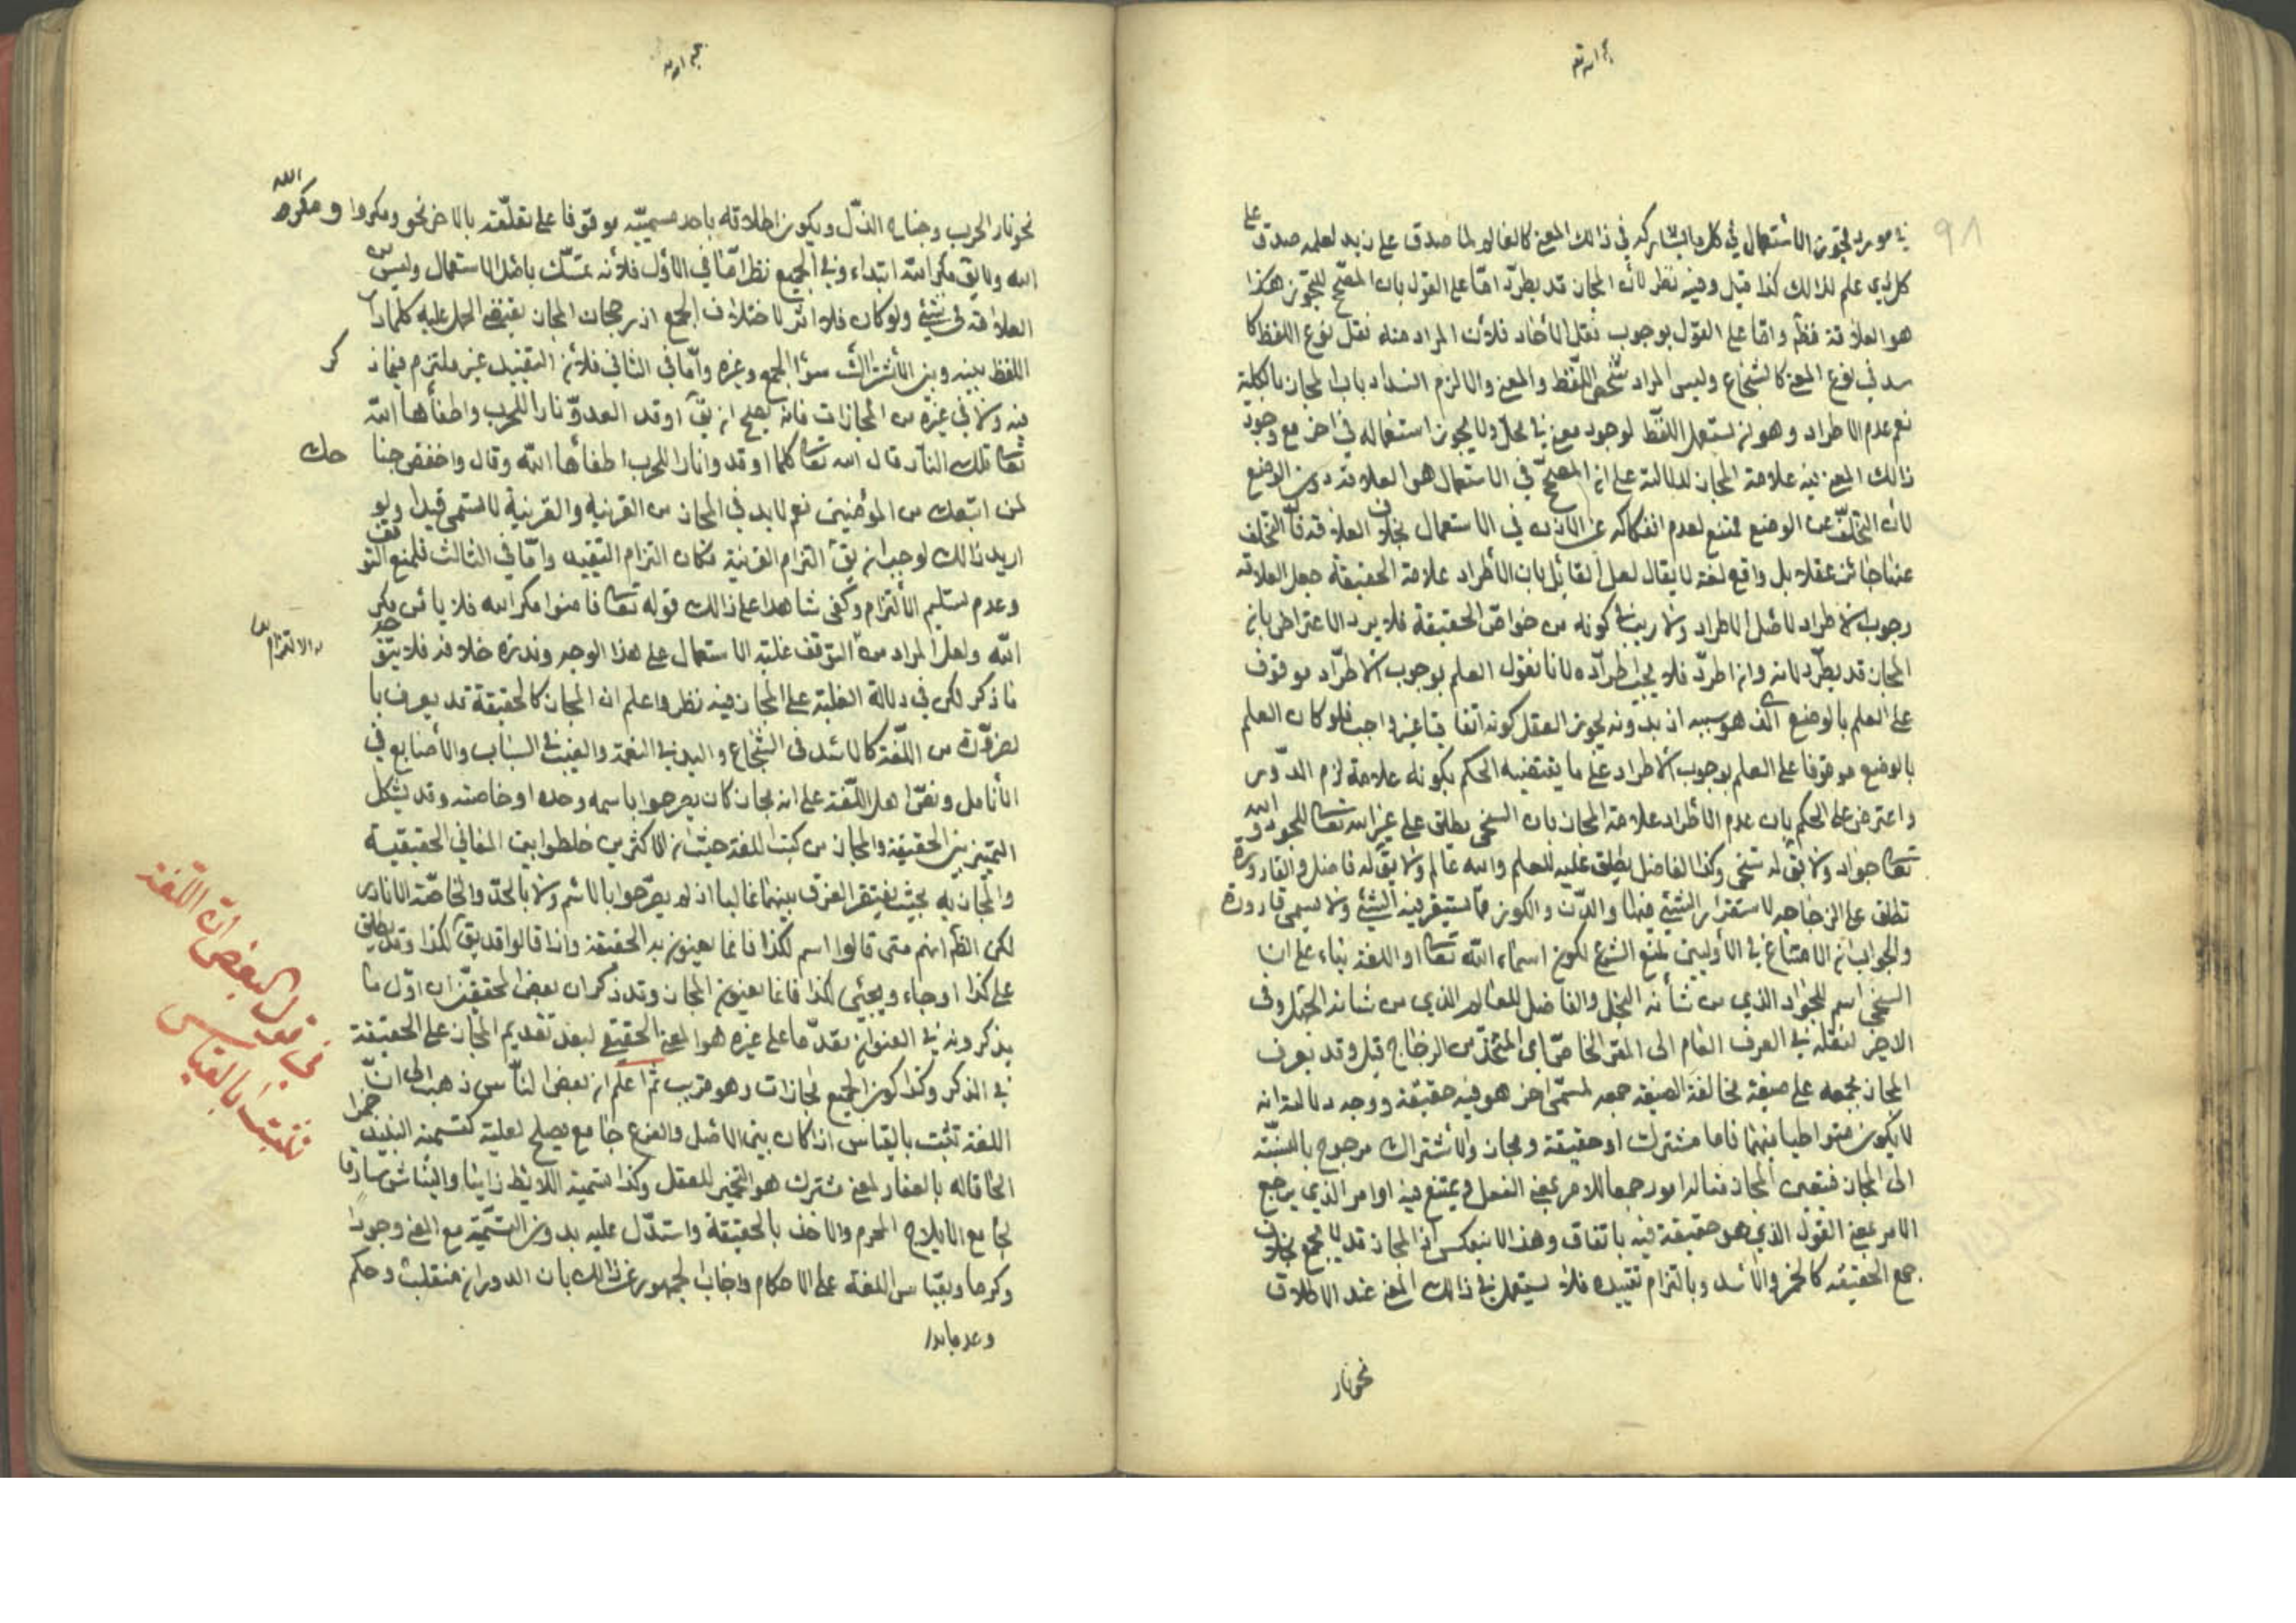 في مورد لتجوز الاستعمال في كل ما يشاركه في ذالك المعنى كالعالم لما صدق على زيد لعلمه صدق على
كل ذي علم لذالك كذا قيل وفيه نظر لأن المجاز قد يطرد امّا على القول بان المصحّح للتجوز هكذا
هو العلاقة فظّم وامّا على القول بوجوب نقل الأحاد فلأن المراد منه نقل نوع اللفظ كا
سد في نوع المعنى كالشجاع وليس المراد شخص اللفظ والمعنى والا لزم انسداد باب المجاز بالكلية
نعم عدم الاطراد وهو ان يستعمل اللفظ لوجود معنى في محلّ ولا يجوز استعماله في اخر مع وجود
ذالك المعنى فيه علامة المجاز لدلالته على ان المصحّح في الاستعمال هو العلاقة دون الوضع
لأن التخلّف عن الوضع ممتنع لعدم انفكاكه عن الاذن في الاستعمال بخلاف العلاقة فأن التخلف
عنها جائز عقلا بل واقع لغة لا يقال لعل القائل بان الأطراد علامة الحقيقة جعل العلامة
وجوب الاطراد لا اصل الاطراد ولا ريب في كونه من خواصّ الحقيقة فلا يرد الاعتراض بان
المجاز قد يطرّد لانه وان اطردّ فلا يجب اطرّاده لانا نقول العلم بوجوب الاطرّاد موقوف
على العلم بالوضع الذي هو سببه اذ بدونه يجوز العقل كونه اتفاقيا غير واجب فلو كان العلم
بالوضع موقوفا على العلم بوجوب الاطراد على ما يقتضيه الحكم بكونه علامة لزم الدّور
واعترض على الحكم بان عدم الأطراد علامة المجاز بان السخي يطلق على غير الله تعالى للجود والله
تعالى جواد ولا يقّ له سخي وكذا الفاضل يطلق عليه للعلم والله عالم ولا يقّ له فاضل والقارورة
تطلق على الزجاجة لاستقرار الشيئ فيها والدّن والكوز ممّا يستقر فيه الشيئ ولا يسمى قارورة
والجواب ان الامتناع في الأوليين لمنع الشرع لكون اسماء الله تعالى او اللغة بناء على ان
السخي اسم للجواد الذي من شأنه البخل والفاضل للعالم الذي من شانه الجهل وفى
الاخير لنقله في العرف العام الى المقر الخاصّ اي المتخذّ من الزجاج قيل وقد يعرف
المجاز بجمعه على صيغة مخالفة لصيغة جمعه لمسمّى اخر هو فيه حقيقة ووجه دلالته انه
لا يكون متواطيا فيهما فاما مشترك او حقيقة ومجاز والأشتراك مرجوح بالنسبّة
الى المجاز فتعين المجاز مثاله امور جمعا للامر بمعنى الفعل ويمتنع فيه اوامر الذي يرجع
الامر بمعنى القول الذي هو حقيقة فيه باتفاق وهذا لا ينعكس اذ المجاز قد لا يجمع بخلاف
جمع الحقيقة كالحمر والأسد وبالتزام تقييده فلا يستعمل في ذالك المعنى عند الاطلاق
نحو نار
نحو نار الحرب وجناح الذّل وبكون اطلاقه باحد مسميّيه موقوفا على تعلّقه بالاخر نحو ومكروا ومكر الله
الله ولا يق مكر الله ابتداء وفي الجميع نظر امّا في الأول فلأنه تمسّك باصل الاستعمال وليس من
العلاقة في شيئ ولو كان فلا اثر لاختلاف الجمع اذ رجحان المجاز يقتضي الحمل عليه كلما دار
اللفظ بينه وبين الأشتراك سواء الجمع وغيره وامّا في الثاني فلأن التقييد غير ملتزم فيما ذكر
فيه ولا في غيره من المجازات فانه يصلح ان يقّ اوقد العدوّ نارا للحرب واطفأها الله
تعالى تلك النار قال الله تعالى كلما اوقدوا نارا للحرب اطفأها الله وقال واخفض جناحك
لمن اتبعك من المؤمنين نعم لا بد في المجاز من القرينة والقرينة لا تسمى قيدا ولو
اريد ذالك لوجب ان يقّ التزام القرينة مكان التزام التقييد وامّا في الثالث فلمنع التوقف
وعدم تسليم الألتزام وكفى شاهدا على ذالك قوله تعالى افامنوا مكر الله فلا يأمن مكر
الله ولعل المراد من التوقف غلبة الاستعمال على هذا الوجه وندرة خلافه فلا يتوجه
ما ذكر لكن في دلالة الغلبة على المجاز فيه نظر واعلم ان المجاز كالحقيقة قد يعرف با
لضروّرة من اللغّة كالاسد في الشجاع واليد في النعمة والغيث في النبات والأصابع في
الأنامل وبنصّ اهل اللّغة على انه مجاز كان يصرحوا باسمه وحده او خاصته وقد يشكل
التمييز بين الحقيقة والمجاز من كتب اللغة حيث ان الاكثرين خلطوا بين المعاني الحقيقية
والمجازيّه بحيث يفتقر الفرق بينهما غالبا اذ لم يصرّحوا بالاسم ولا بالحدّ والخاصّة الا نادرا
لكن الظّم انهم متى قالوا اسم لكذا فانما يعنون به الحقيقة واذا قالوا قد يقّ لكذا وقد يطلق
على كذا او جاء ويجئى لكذا فانما يعنون المجاز وقد ذكر ان بعض المحققّين ان اوّل ما
يذكرونه في العنوان مقدّما على غيره هو المعنى الحقيقي لبعد تقديم المجاز على الحقيقة
في الذكر وكذا كون الجميع مجازات وهو قريب ثم اعلم ان بعض النأّس ذهب الى ان
اللغة تثبت بالقياس اذا كان بين الاصل والفرع جامع يصلح لعلية كتسمية النبيذ خمرا
الحاقا له بالعقار لمعنى مشترك هو التخمير للعقل وكذا تسمية اللايط زانيا والنّباش سارقا
لجامع الايلاج المحرم والاخذ بالحقيقة واستدّل عليه بدوران التسمّية مع المعنى وجودا
وبقياس اللغة على الاحكام واجاب الجمهور عن ذالك بان الدوران منقلب وحكم
وعدما بدو
الالتزام
في قول البعض ان اللّغة
تثبت بالقياس
٩٨